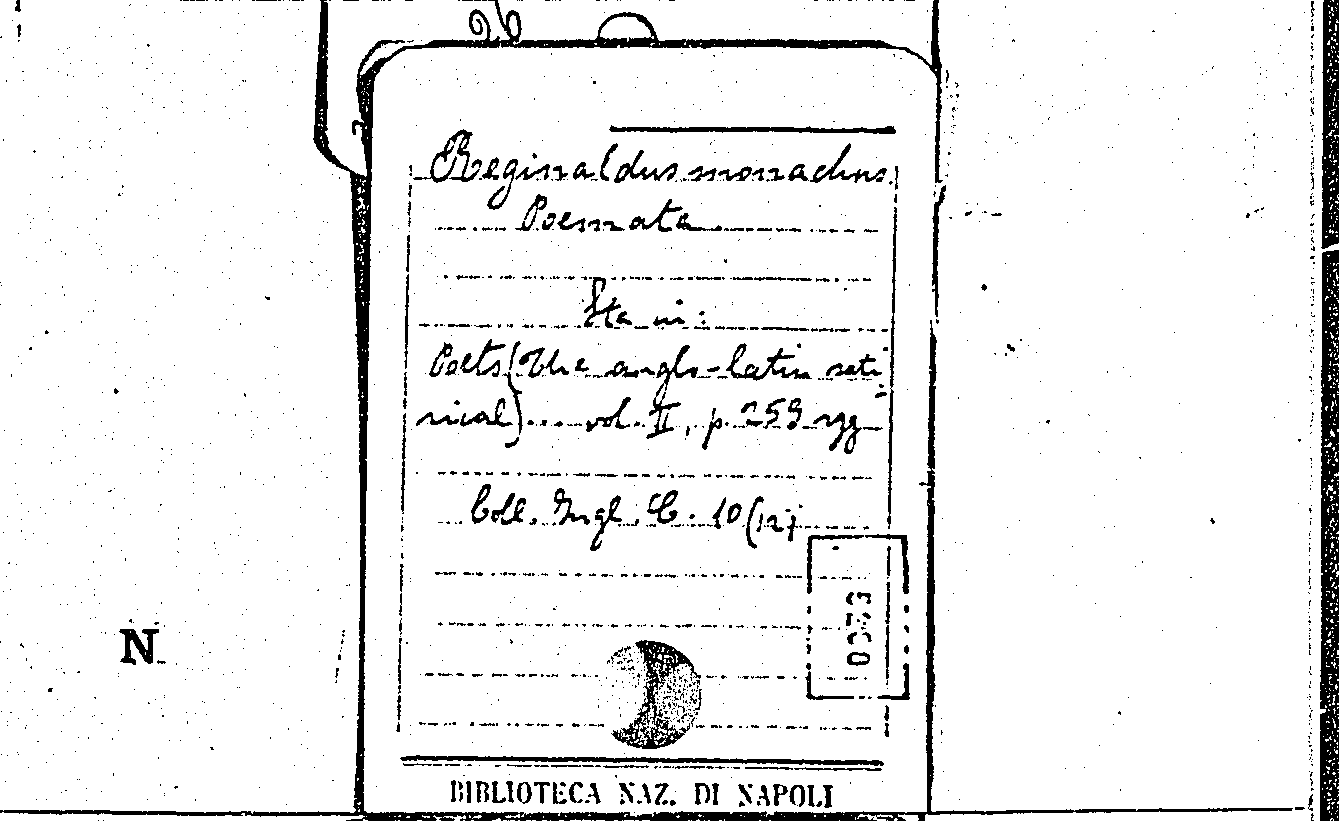 26
Reginaldus monachus.
Poemata.
Sta in:
Poets (The anglo-latin sati
rical)... vol. II, p. 259 sgg
Coll. Ingl. C. 10 (12)
N
BIBLIOTECA NAZ. DI NAPOLI